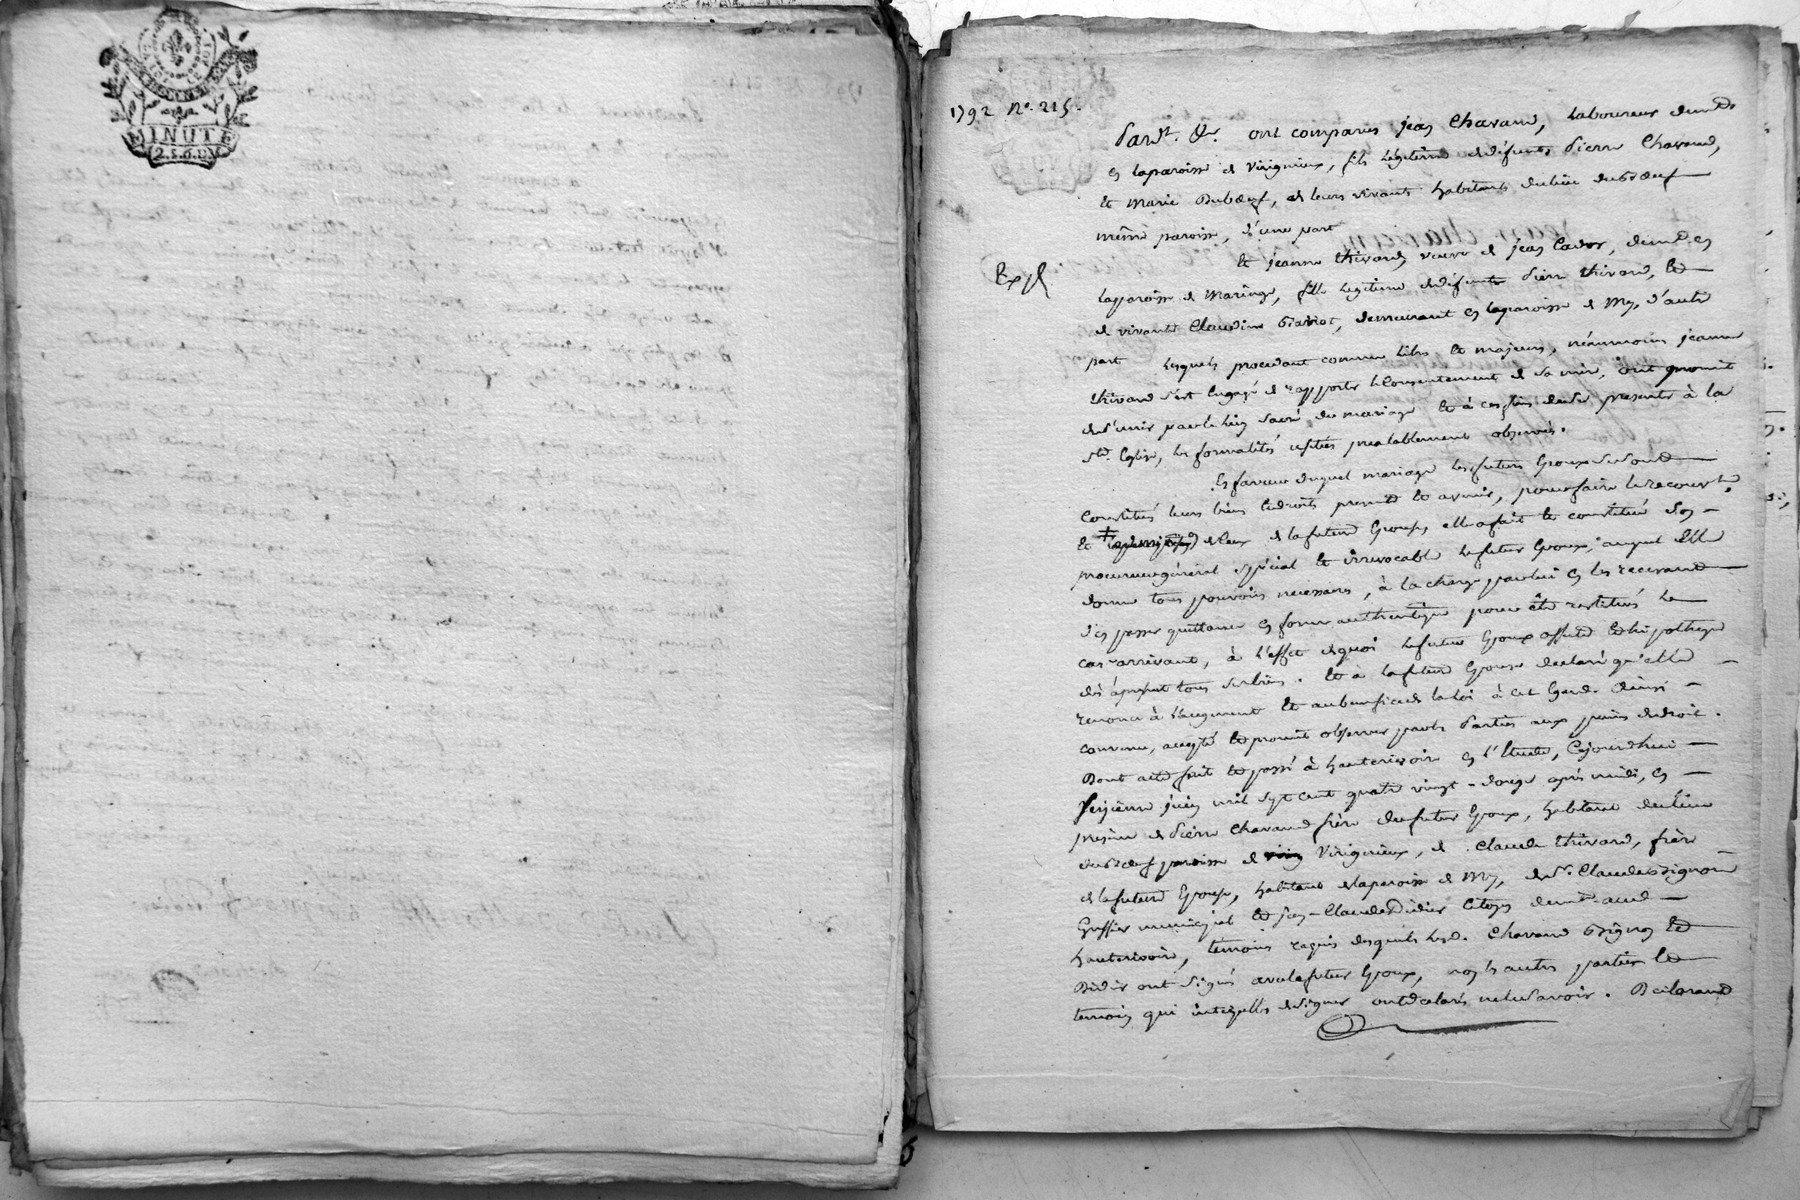 MINUTE
1792 N°. 215.
Pard^t. &^r. ont comparus jean Chavand, Laboureur dem^t.
en la paroisse de Virignieux, fils légitime de défunts Pierre Chavand,
et Marie Duboeuf, de leurs vivants habitants du lieu duboeuf
même paroisse, d'une part
Exp^é
Et jeanne thivard veuve de jean Cador, dem^t. en
la paroisse de Maringe, fille legitime de défunts Pierre thivard, et
de vivante Claudine demeurant en la paroisse de Mey, d'autre
part Lesquels procedant comme libres et majeurs, néanmoins jeanne
thivard s'est engagé de rapporter le Consentement de sa mère, ont promit
de s'unir par le lien Sacré du mariage et à ces fins de se presenter à la
Ste. Eglise, les formalités usitées préalablement observés.
En faveur duquel mariage les futurs Epoux se sont
Constitués leurs biens et droits present et avenir, pour faire le recouvr^t.
et de ceux de la future Epouse, elle a fait et constitué son
procureur général spécial et irrevocable le futur Epoux, auquel elle
donne tous pouvoirs nécessaires, à la charge par lui en les recevant
d'en passer quittance en forme authentique pour être restitués le
cas arrivant, à l'effet de quoi le futur Epoux affecte et hipotheque
dès àprésent tous ses biens. Et a la future Epouse declaré qu'elle
renonce à l'augment et au benefice de la loi à cet Egard. Ainsi
convenu, accepté et promit observer par les Parties aux peines de droit.
Dont acte fait et passé à hauterivoire en l'Etude, Cejourdhui
Seizieme juin mil sept cent quatre vingt-douze après midi, en
présence de Pierre Chavand frère du futur Epoux, habitant du lieu
duboeuf paroisse de Virignieux, de Claude thivard, frère
de la future Epouse, habitant de la paroisse de Mey, de S^r. Claude
Greffier municipal et jean-Claude Didier Citoyen dem^t. aud
hauterivoire, témoins requis desquels lesd. Chavand et
Didier ont signés avec le futur Epoux, non les autres parties et
temoin qui interpellés de signer ont declarés ne le savoir.